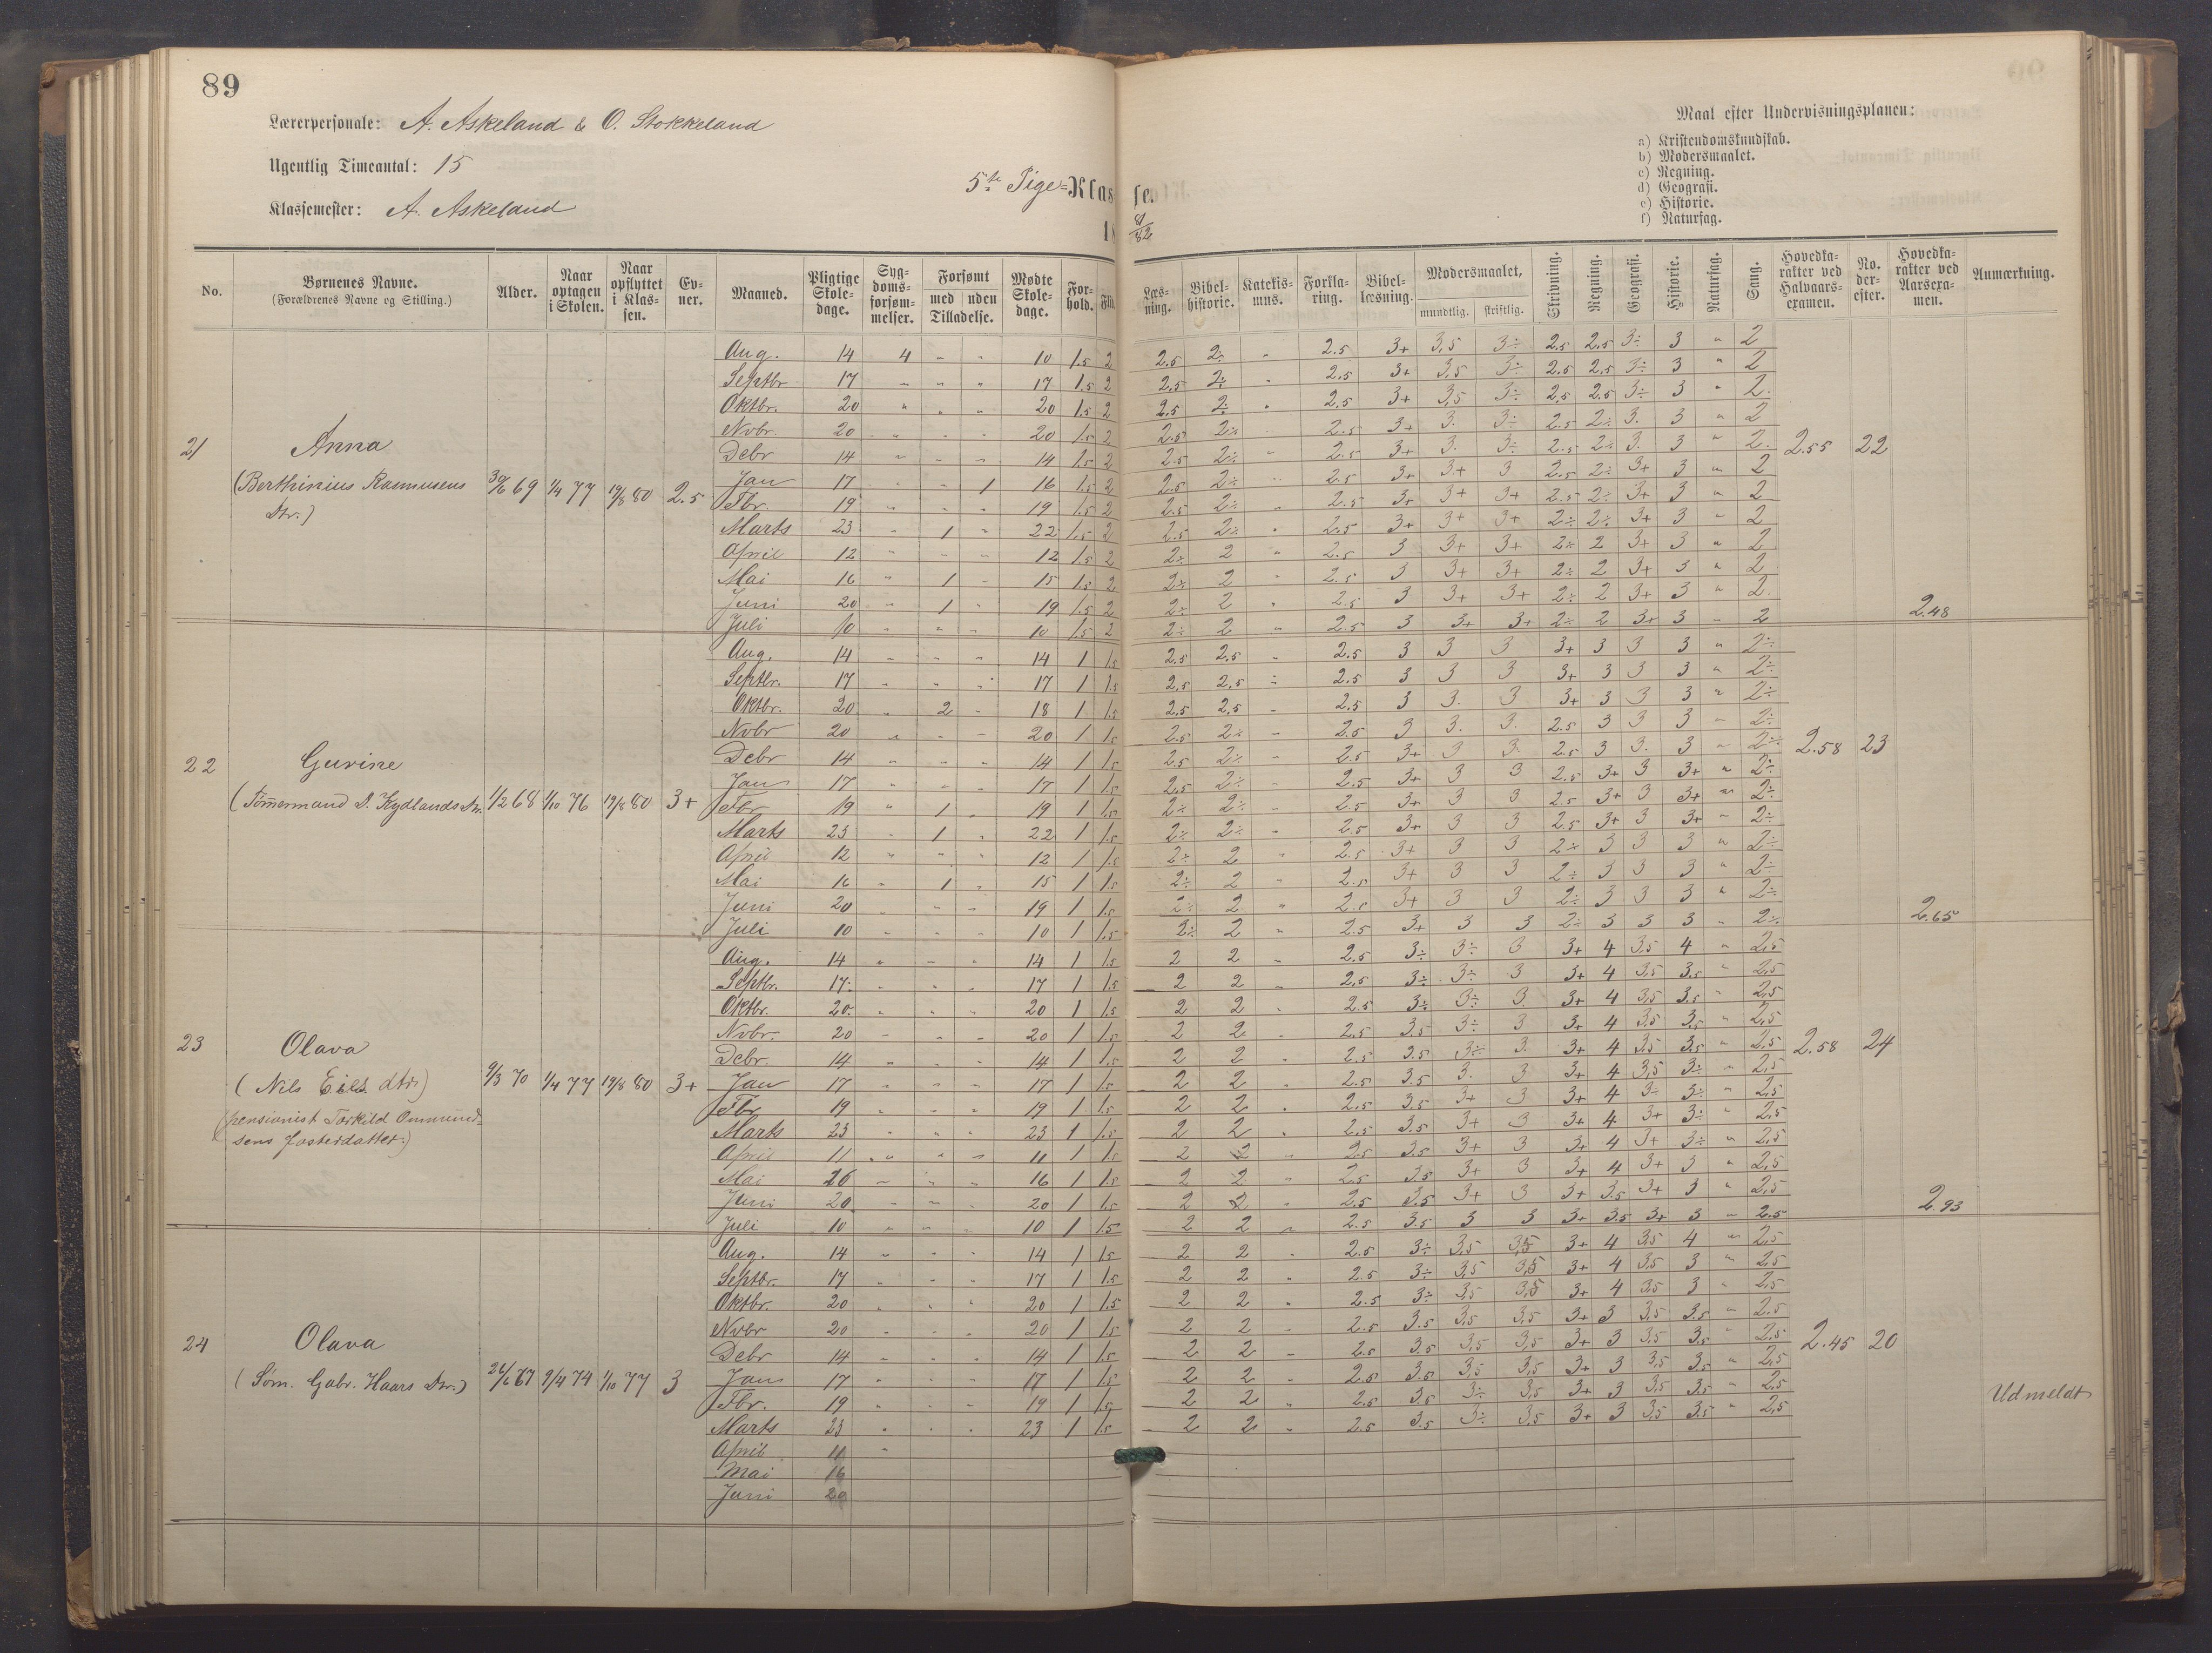 89
Lærerpersonale: A. Askeland & O. Stokkeland
Ugentlig Timeantal: 15
Klassemester: A. Askeland
5te Pige-Klasse.
18 81/82
Maal efter Undervisningsplanen:
a) Kristendomskundskab.
b) Modersmaalet.
c) Regning.
d) Geografi.
e) Historie.
f) Naturfag.
No. | Børnenes Navne. (Forældrenes Navne og Stilling.) | Alder. | Naar optagen i Skolen. | Naar opflyttet i Klassen. | Evner. | Maaned. | Pligtige Skoledage. | Sygdomsforsømmelser. | Forsømt med uden Tilladelse. | Mødte Skoledage. | Forhold. | Flid | Læsning. | Bibelhistorie. | Katekismus. | Forklaring. | Bibellæsning. | Modersmaalet, mundtlig. skriftlig. | Skrivning. | Regning. | Geografi. | Historie. | Naturfag. | Sang. | Hovedkarakter ved Halvaarsexamen. | No. derefter. | Hovedkarakter ved Aarsexamen. | Anmærkning.
21 Anna
(Berthinius Rasmusens Dtr.) 30/6 69 1/4 77 19/8 80 2.5
Aug. 14 4 " " 10 1.5 2 2.5 2÷ " 2.5 3+ 3,5 3÷ 2.5 2,5 3÷ 3 " 2
Septbr 17 " " " 17 1.5 2 2.5 2÷ " 2.5 3+ 3,5 3÷ 2.5 2,5 3÷ 3 " 2
Oktbr. 20 " " " 20 1.5 2 2.5 2÷ " 2.5 3+ 3,5 3÷ 2,5 2.5 3÷ 3 " 2
Nvbr. 20 " " " 20 1.5 2 2.5 2÷ " 2.5 3+ 3. 3÷ 2.5 2÷ 3. 3 " 2
Debr 14 " " " 14 1.5 2 2.5 2÷ " 2.5 3+ 3. 3÷ 2.5 2÷ 3. 3 " 2. 2.55 22
Jan 17 " " 1 16 1.5 2 2.5 2÷ " 2.5 3+ 3+ 3 2.5 2÷ 3+ 3 " 2
Fbr. 19 " " " 19 1.5 2 2.5 2÷ " 2.5 3+ 3+ 3+ 2.5 2÷ 3+ 3 " 2
Marts 23 " 1 " 22 1.5 2 2.5 2÷ " 2.5 3+ 3+ 3+ 2÷ 2÷ 3+ 3 " 2
April 12 " " " 12 1.5 2 2÷ 2 " 2.5 3 3+ 3+ 2÷ 2 3+ 3 " 2
Mai 16 " 1 " 15 1.5 2 2÷ 2 " 2.5 3 3+ 3+ 2÷ 2 3+ 3 " 2
Juni 20 " 1 " 19 1.5 2 2÷ 2 " 2.5 3 3+ 3+ 2÷ 2 3+ 3 " 2.
Juli 10 " " " 10 1.5 2 2÷ 2 " 2.5 3 3+ 3+ 2÷ 2 3+ 3 " 2 2.48
22 Gurine
(Tømmermand D. Kydlands Dtr. 1/2 68 1/10 76 19/8 80 3+
Aug. 14 " " " 14 1 1.5 2.5 2.5 " 2.5 3 3 3 3+ 3 3 3 " 2÷
Septbr. 17 " " " 17 1 1.5 2.5 2,5 " 2.5 3 3 3 3+ 3 3 3 " 2÷
Oktbr. 20 " 2 " 18 1 1.5 2.5 2.5 " 2.5 3 3. 3 3+ 3 3 3 " 2÷
Nvbr 20 " " " 20 1 1.5 2.5 2÷ " 2.5 3 3. 3. 2.5 3 3 3 " 2÷
Debr 14 " " " 14 1 1.5 2.5 2÷ " 2.5 3+ 3 3. 2.5 3 3. 3 " 2÷ 2.58 23
Jan 17 " " " 17 1 1.5 2.5 2÷ " 2.5 3+ 3 3 2.5 3+ 3 3+ " 2÷
Fbr 19 " 1 " 19 1 1.5 2÷ 2÷ " 2.5 3+ 3 3 2.5 3+ 3 3+ " 2÷
Marts 23 " 1 " 22 1 1.5 2÷ 2÷ " 2.5 3+ 3 3 2.5 3+ 3 3+ " 2÷
April 12 " " " 12 1 1.5 2÷ 2 " 2.5 3+ 3 3 2÷ 3 3 3 " 2÷
Mai 16 " 1 " 15 1 1.5 2÷ 2 " 2.5 3+ 3 3 2÷ 3 3 3 " 2÷
Juni 20 " " " 19 1 1.5 2÷ 2 " 2.5 3+ 3 3 2÷ 3 3 3 " 2÷
Juli 10 " " " 10 1 1.5 2÷ 2 " 2.5 3+ 3 3 2÷ 3 3 3 " 2÷ 2.65
23 Olava
(Nils Eiks dtr)
(pensionist Torkild Ommundsens fosterdatter.) 9/3 70 1/4 77 19/8 80 3+
Aug. 14 " " " 14 1 1.5 2 2 " 2.5 3÷ 3÷ 3 3+ 4 3,5 4 " 2,5
Septbr. 17 " " " 17 1 1.5 2 2 " 2,5 3÷ 3÷ 3 3+ 4 3,5 3.5 " 2,5
Oktbr. 20 " " " 20 1 1.5 2 2 " 2.5 3÷ 3÷ 3. 3+ 4 3,5 3.5 " 2,5
Nvbr. 20 " " " 20 1 1.5 2 2 " 2.5 3.5 3÷ 3 3+ 4 3.5 3.5 " 2,5
Debr. 14 " " " 14 1 1.5 2 2 " 2.5 3.5 3÷ 3. 3+ 4 3,5 3.5 " 2,5 2.58 24
Jan 17 " " " 17 1 1.5 2 2 " 2.5 3.5 3. 3 3+ 4 3,5 3÷ " 2,5
Fbr 19 " " " 19 1 1.5 2 2 " 2.5 3.5 3+ 3 3+ 4 3÷ 3÷ " 2,5
Marts 23 " " " 23 1 1.5 2 2 " 2.5 3.5 3+ 3 3+ 4 3+ 3÷ " 2,5
April 11 " " " 11 1 1.5 2 2 " 2.5 3.5 3+ 3 3+ 4 3+ 3÷ " 2,5
Mai 26 " " " 16 1 1.5 2 2 " 2.5 3.5 3+ 3 3+ 4 3+ 3 " 2,5
Juni 20 " " " 20 1 1.5 2 2 " 2.5 3.5 3+ 3 3+ 3.5 3+ 3 " 2,5
Juli 10 " " " 10 1 1.5 2 2 " 2.5 3.5 3 3 3+ 3.5 3+ 3 " 2.5 2.93
24 Olava
(Søm. Gabr. Haars Dtr.) 26/6 67 9/4 74 1/10 77 3
Aug. 14 " " " 14 1 1.5 2 2 " 2.5 3÷ 3,5 3,5 3+ 4 3,5 4 " 2,5
Septbr. 17 " " " 17 1 1.5 2 2 " 2.5 3÷ 3,5 3,5 3+ 4 3,5 3 " 2,5
Oktbr. 20 " " " 20 1 1.5 2 2 " 2.5 3÷ 3,5 3,5 3+ 4 3,5 3 " 2,5
Nvbr 20 " " " 20 1 1.5 2 2 " 2.5 3.5 3,5 3,5 3+ 3 3,5 3.5 " 2.5
Debr 14 " " " 14 1 1.5 2 2 " 2.5 3.5 3,5 3,5 3+ 3 3,5 3.5 " 2,5 2.45 20
Jan 17 " " " 17 1 1.5 2 2 " 2.5 3.5 3,5 3,5 3+ 3 3,5 3.5 " 2,5
Fbr. 19 " " " 19 1 1.5 2 2 " 2.5 3.5 3÷ 3,5 3+ 3 3,5 3.5 " 2,5 Udmeldt
Marts 23 " " " 23 1 1.5 2 2 " 2.5 3.5 3÷ 3,5 3+ 3 3,5 3.5 " 2,5
April 11 "
Mai 16
Juni 20